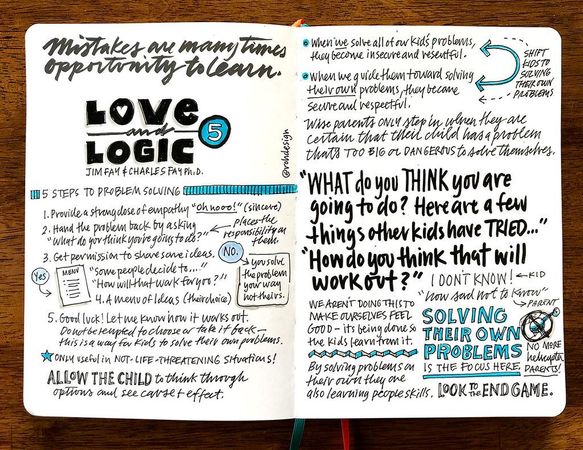 Mistakes are many times
opportunity to learn.
LOVE
and
LOGIC
5
JIM FAY & CHARLES FAY Ph.D.
@rohdesign
5 STEPS TO PROBLEM SOLVING
1. Provide a strong dose of empathy "Oh nooo!" (sincere)
2. Hand the problem back by asking
"what do you think you're going to do?"
places the
responsibility on
them.
3. Get permission to share some ideas.
No.
Yes
MENU
"Some people decide to...."
"How will that work for you?"
4. A menu of Ideas (their choice)
you solve
the problem
your way
not theirs.
5. Good luck! Let me know how it works out.
Do not be tempted to choose or take it back —
this is a way for kids to solve their own problems.
ONLY useful in NOT-LIFE-THREATENING SITUATIONS!
ALLOW THE CHILD to think through
options and see cause + effect.
When we solve all of our kid's problems,
they become insecure and resentful.
When we guide them toward solving
their own problems, they become
secure and respectful.
SHIFT
KIDS TO
SOLVING
THEIR OWN
PROBLEMS
Wise parents ONLY step in when they are
certain that their child has a problem
that's TOO BIG or DANGEROUS to solve themselves.
"WHAT do you THINK you are
going to do? Here are a few
things other kids have TRIED..."
"How do you think that will
work out?"
I DON'T KNOW!
KID
"How sad not to know"
PARENT
WE AREN'T DOING THIS TO
MAKE OURSELVES FEEL
GOOD - it's being done so
the kids learn from it.
By solving problems on
their own they are
also learning people skills.
SOLVING
THEIR OWN
PROBLEMS
IS THE FOCUS HERE
NO MORE
helicopter
PARENTS!
LOOK TO THE END GAME.